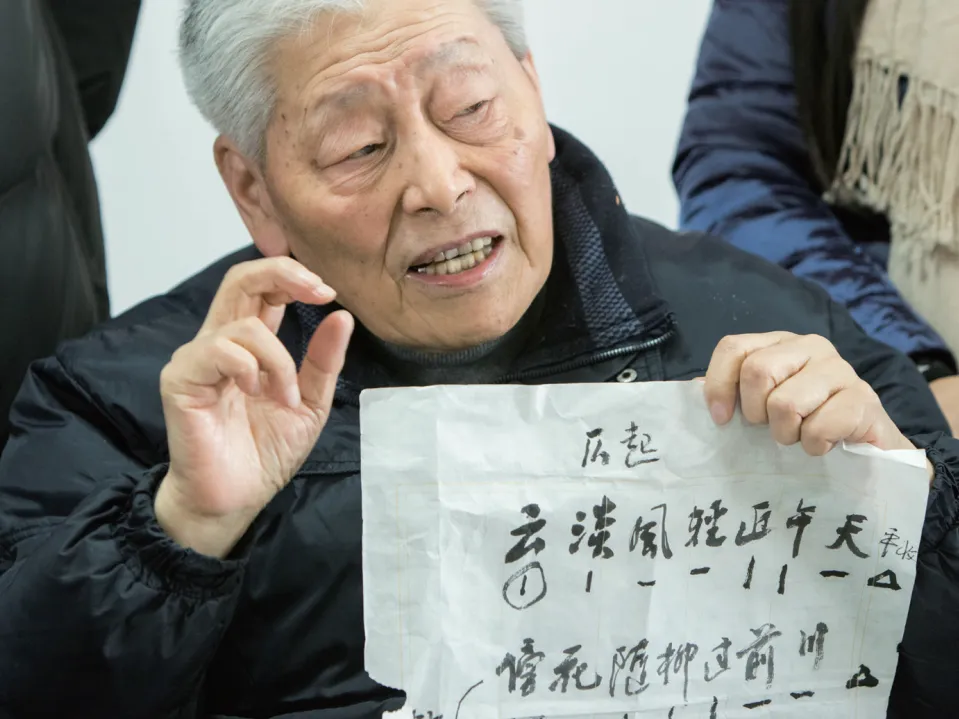 仄起
云淡風轻近午天 平收
① | — — | | — △
傍花随柳过前川